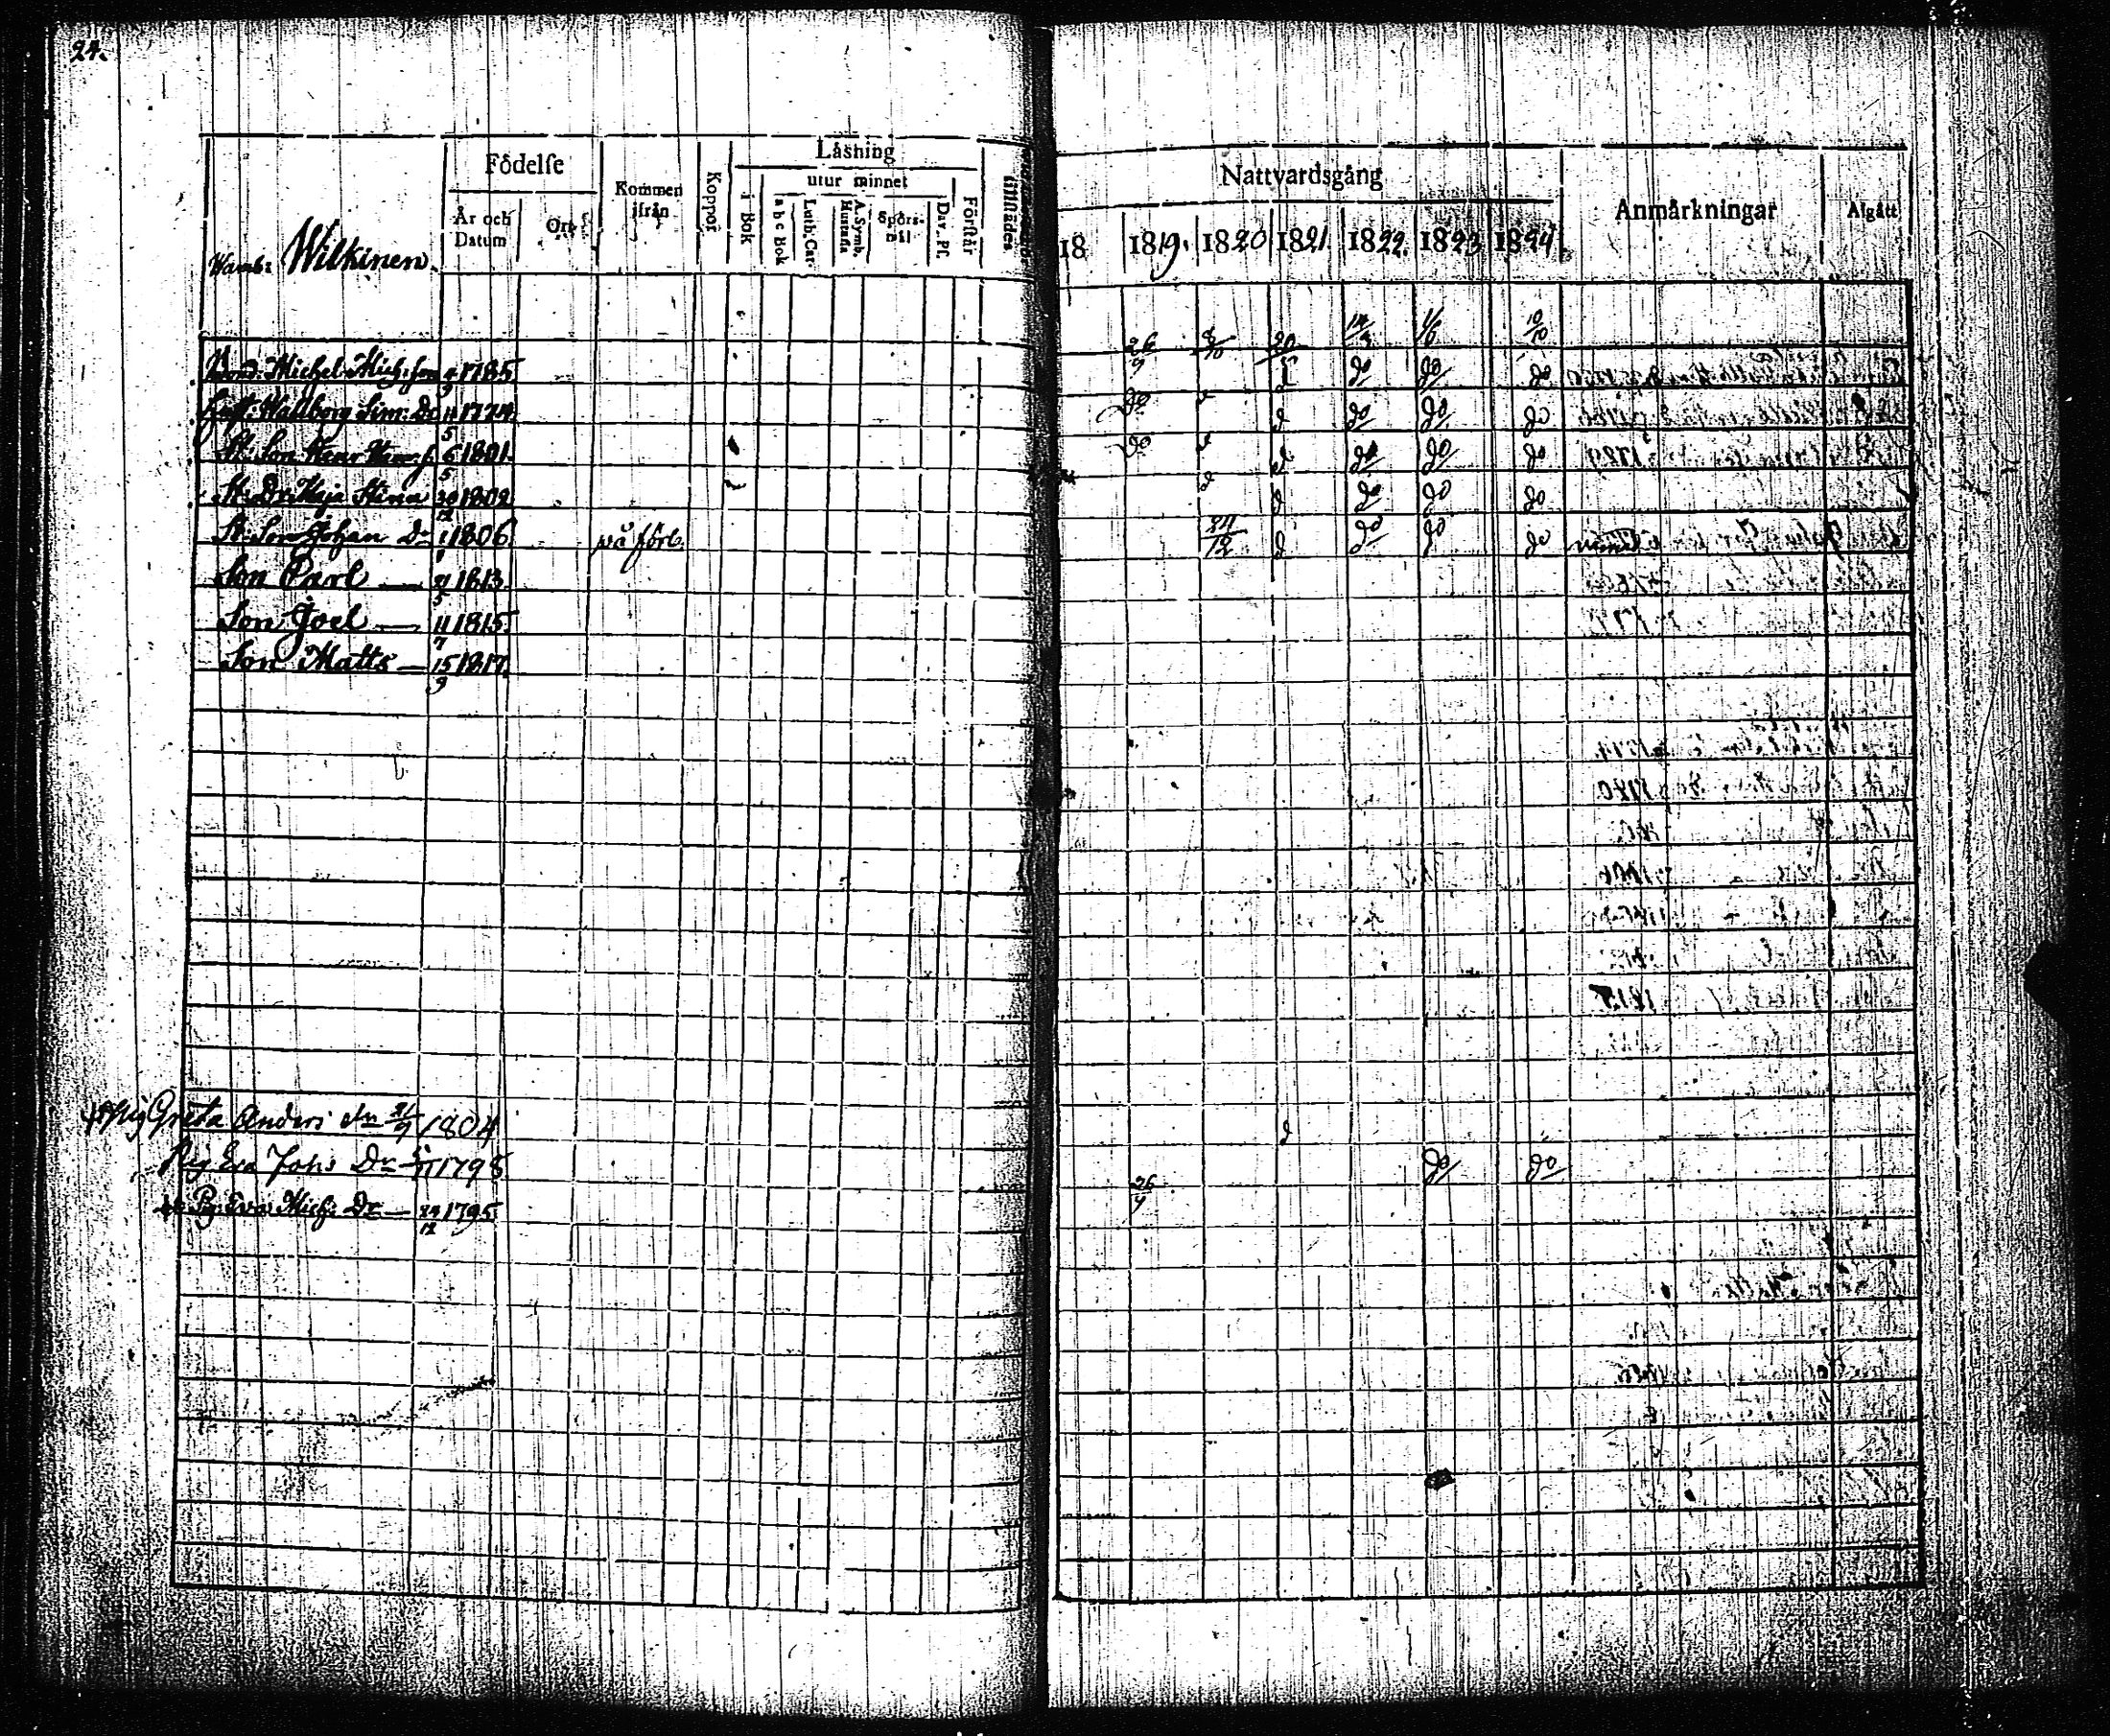 24.
Födelse
Läsning
utur minnet
Kommen ifrån
Koppor
i Bok
a b c Bok
Luth. Cat.
A. Symb. Hustafla
Spörs-mål
Dav. Ps.
Förstår
tillträdes
År och Datum
Ort
Wamb: Wilkinen.
Nattvardsgång
Anmärkningar
Afgått
18 1819. 1820 1821 1822. 1823 1824.
26/9 8/10 20 14/3 1/6 10/10
Bond. Michel Mich: son 4/9 1785. do do do
Hust: Wallborg Sim: Dr 11/5 1774. do d do do do
St: Son Henr Henr: s. 6/5 1801. do d do do do
St: Dr: Kaja Stina 30/12 1802 d do do do
St: Son Johan Dr 1/1 1806. på förb. 24/12 d do do do
Son Carl — 21/5 1813
Son Joel — 11/7 1815.
Son Matts — 15/9 1817.
Pig Greta Anders dr 21/9 1804 d
Pig Eva Johs Dr 5/11 1798 do do
Pig. Eva Mich: Dr — 24/12 1795. 26/9